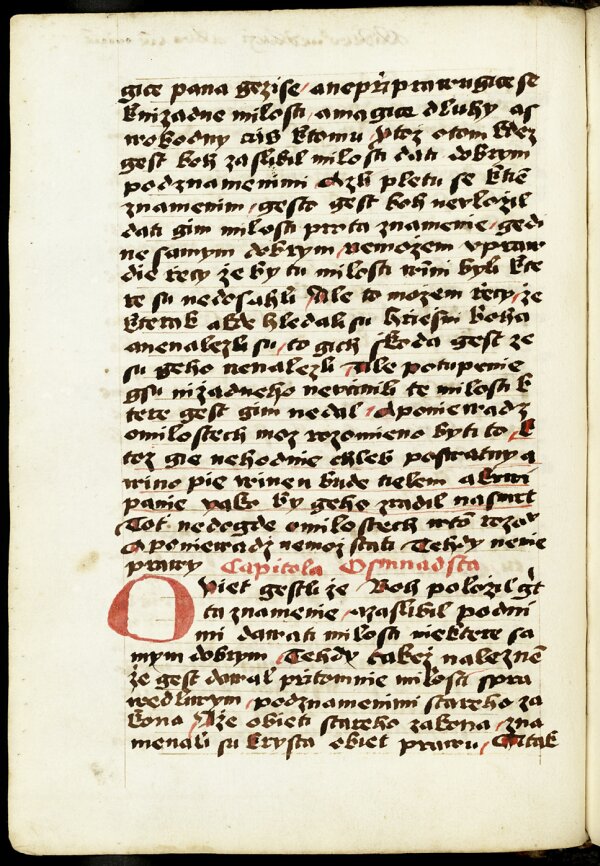 gice pana gezise / anepřiprawugice se
knizadne milosti / amagice dluhy as
wobodny cús ktomu / ytoz otom kdez
gest boh zaslibil milosti dati dobrym
podznamenimi Azli pletu se ktiē
znamenim / gesto gest boh newlozil
dati gim milosti prota znamenie / gedi
ne samym dobrym / nemozem vpraw
die řecy že by tu milosti wnni byli kte
re su nedosahli / Ale to možem řecy / že
kterak akde hledali su hřiesni boha
anenalezli su / to gich skoda gest ze
su geho nenalezli Ale potupenie
gsu nizadneho nevcinili te milosti k
tere gest gim nedal / Aponiewadz
omilostech moz rozomieno byti to / k
toz gie nehodnie chleb poswatny a
wino pie winen bude tielem akrwi
panie yako by geho zradil nasmrt
Tot nedogde omilostech wtō rozo
Aponiewadz nemoz stati Tehdy nenie
prawy Capitola Osmnadsta
Owiet gestli že Boh položil gt
ta znamenie azaslibil podni
mi dawati milosti niektere sa
mym dobrym / Tehdy takež naleznē
že gest dawal přitomnie milosti spra
wedliwym / podznamenimi stareho za
kona / Aže obieti stareho zakona / zna
menali su krysta obiet prawu / Atak